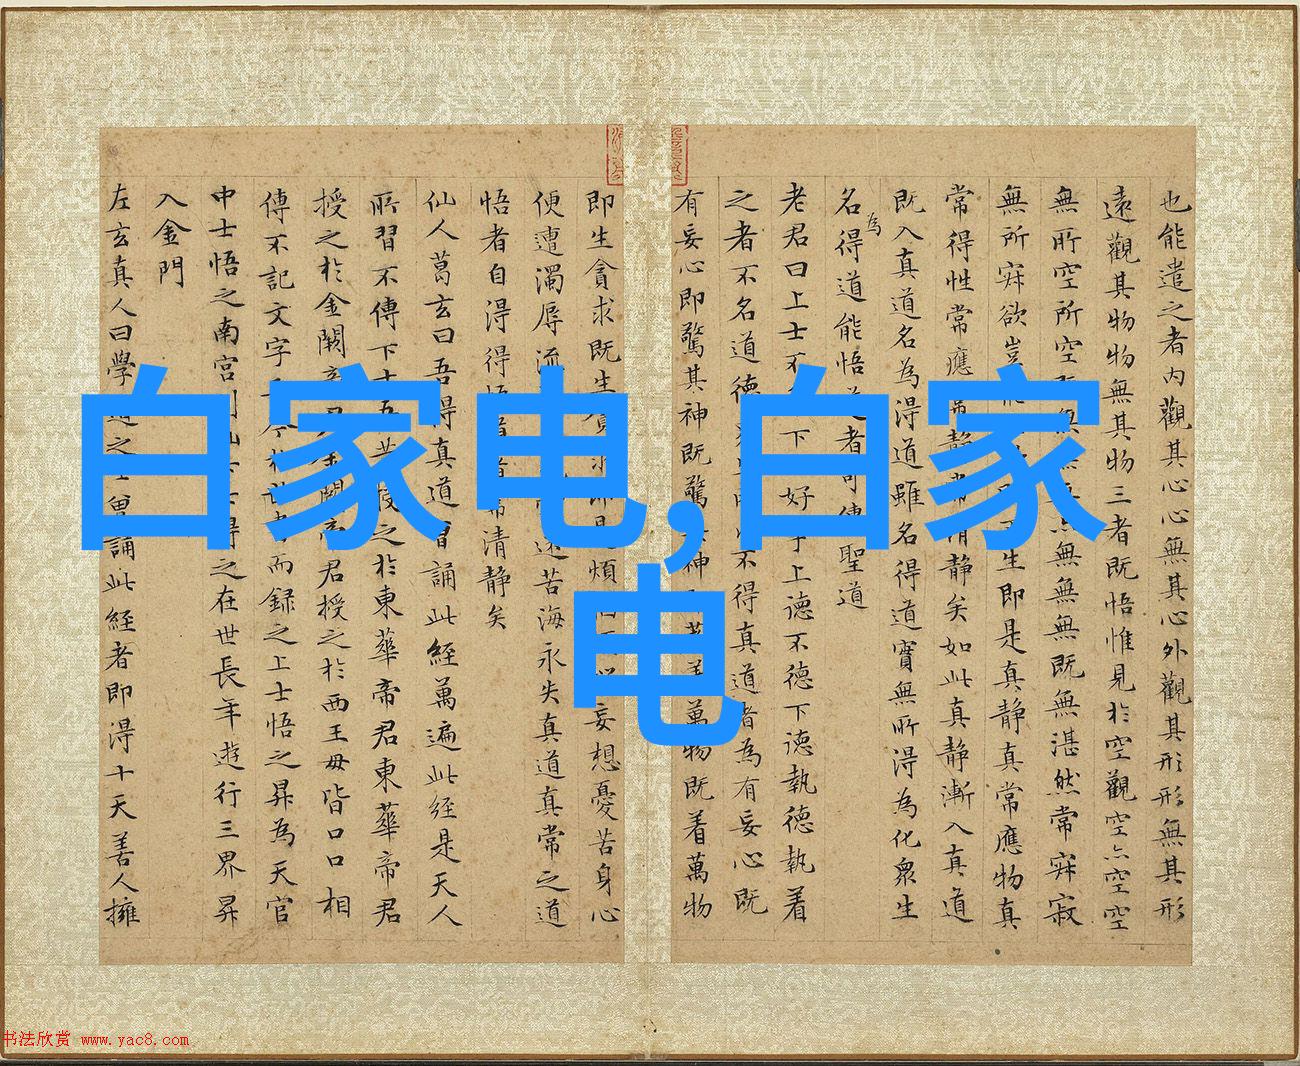 也能遣之者內觀其心心無其心外觀其形形無其形
遠觀其物物無其物三者既悟惟見於空觀空亦空空
無所空所空無無亦無無無既無湛然常寂寂
無所寂欲豈生即是真静真常應物真
常得性常應常静常清静矣如此真静漸入真道
既入真道名為得道雖名得道實無所得為化衆生
名為得道能悟之者可傳聖道
老君曰上士不下好上德不德下德執德執着
之者不名道德不得真道者為有妄心既
有妄心即驚其神既驚其神萬物既着萬物
即生貪求既生貪求即是煩妄想憂苦身心
便遭濁辱流苦海永失真道真常之道
悟者自得得悟道者常清静矣
仙人葛玄曰吾得真道曾誦此經萬遍此經是天人
所習不傳下士吾昔受之於東華帝君東華帝君
授之於金闕帝君金闕帝君授之於西王母皆口口相
傳不記文字吾今於世書而録之上士悟之昇為天官
中士悟之南宮列士得之在世長年遊行三界昇
入金門
左玄真人曰學道之士曾誦此經者即得十天善人擁
白家电,白家
电
书法欣赏 www.yac8.com